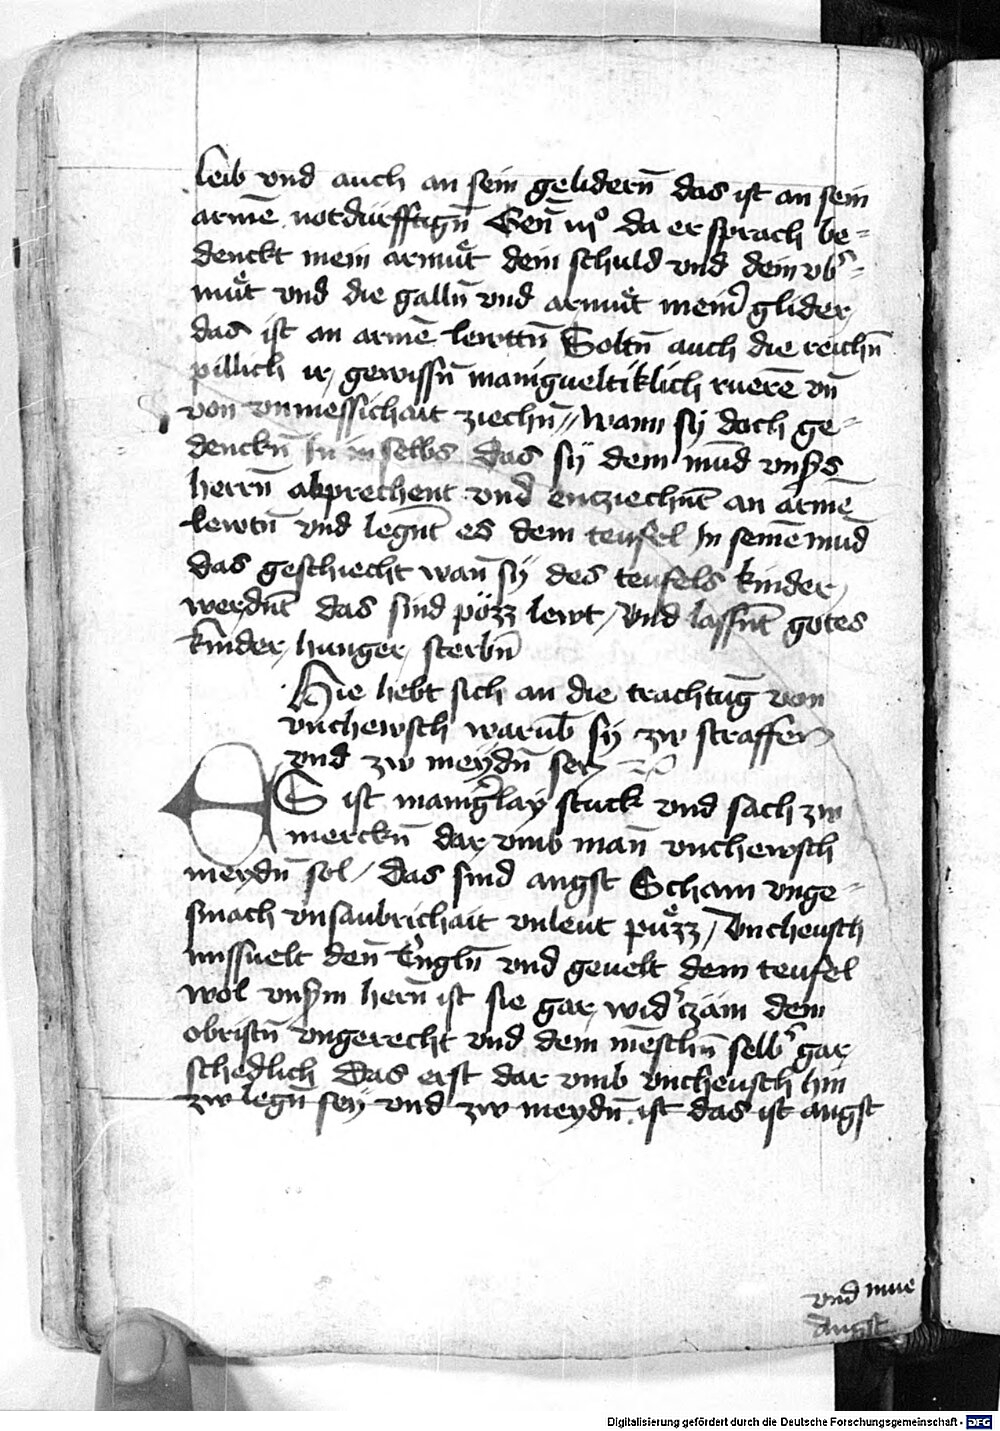 leib vnd auch an sein gelidern̄ das ist an sein
armē notdurfftign̄ da er sprach be=
denckt mein armuͤt dein schuld vnd dein vb͛=
muͤt vnd die galln̄ vnd armuͤt mein͛ glider
das ist an armē lewttn̄ Soltn̄ auch die reichn̄
pillich ir gewissn̄ manigueltiklich ruerē vn̄
von vnmessichait ziechn̄ // wann sy doch ge=
denckn̄ In in selbs das sÿ dem mūd vns͛s
herrn̄ abprechent vnd entziechnt̄ an armē
lewtn̄ vnd legnt̄ es dem teufel In seinē mūd
das geschiecht wan̄ sÿ des teufels kinder
werdnt̄ das sind pözz lewt / Vnd lassnt̄ gotes
kinder hunger sterbn̄
Hie hebt sich an die trachtūg von
vnchewsch warūb sÿ zw straffen
vnd zw meydn̄ sey
ES ist manig͛lay stuck vnd sach zw
merckn̄ dar vmb man̄ vnchewsch
meydn̄ sol / das sind angst Scham vnge=
smach vnsaubrichait vnleut puͤzz / Vncheusch
missuelt den̄ Engln̄ vnd geuelt dem teufel
wol vns͛m hern̄ ist sie gar wid͛czäm dem
obristn̄ vngerecht vnd dem mēschn̄ selb͛ gar
schedlich Das erst dar vmb vncheusch hin
zw legn̄ seÿ vnd zw meydn̄ ist das ist angst
vnd mue
angst
Digitalisierung gefördert durch die Deutsche Forschungsgemeinschaft - DFG